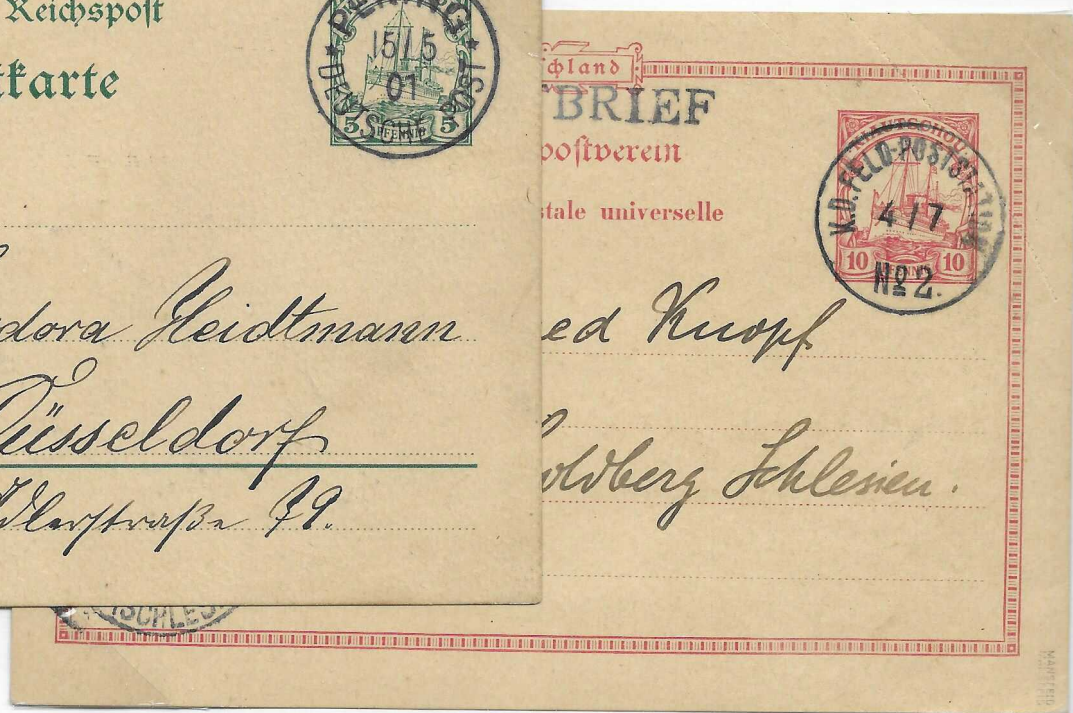 Reichspost
tkarte
PEKING
15/5
01
DEUTSCHE POST
5 PFENNIG 5
dora Heidtmann
Düsseldorf
dlerstraße 79.
chland
TBRIEF
postverein
stale universelle
KIAUTSCHOU
K.D. FELD-POSTSTATION
4/7
No 2.
10 PFENNIG 10
ed Knopf
oldberg Schlesien.
(SCHLES